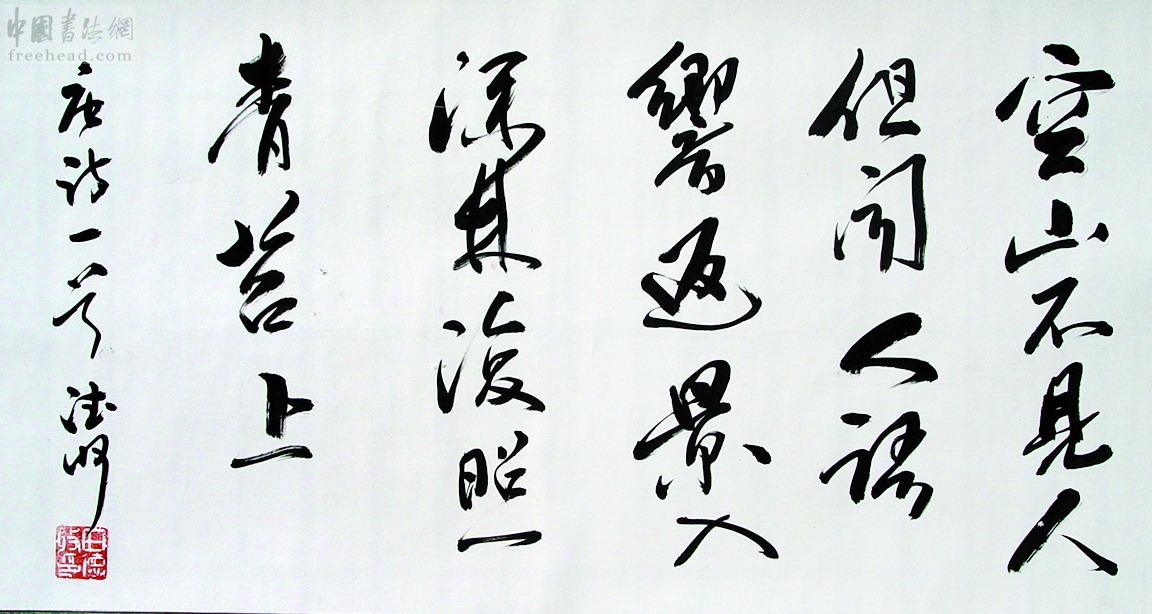 中國書法網
freehead.com
空山不見人
但聞人語
響返景入
深林復照
青苔上
唐詩一首